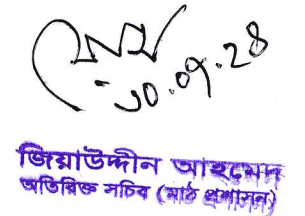 ১০.০৭.২৪
জিয়াউদ্দীন আহমেদ
অতিরিক্ত সচিব (মাঠ প্রশাসন)